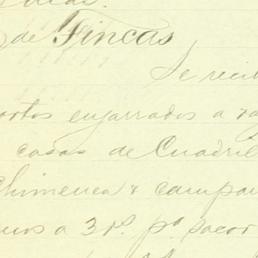 de Fincas
Se reci
ortos enjarrados a
casas de Cuadril
Chimenea & campan
nos a 3 rs. pa. sacor